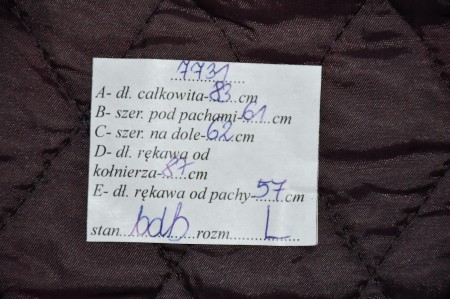 7731
A- dł. całkowita-83 cm
B- szer. pod pachami-61 cm
C- szer. na dole-62 cm
D- dł. rękawa od
kołnierza-87 cm
E- dł. rękawa od pachy-57 cm
stan bdb rozm L